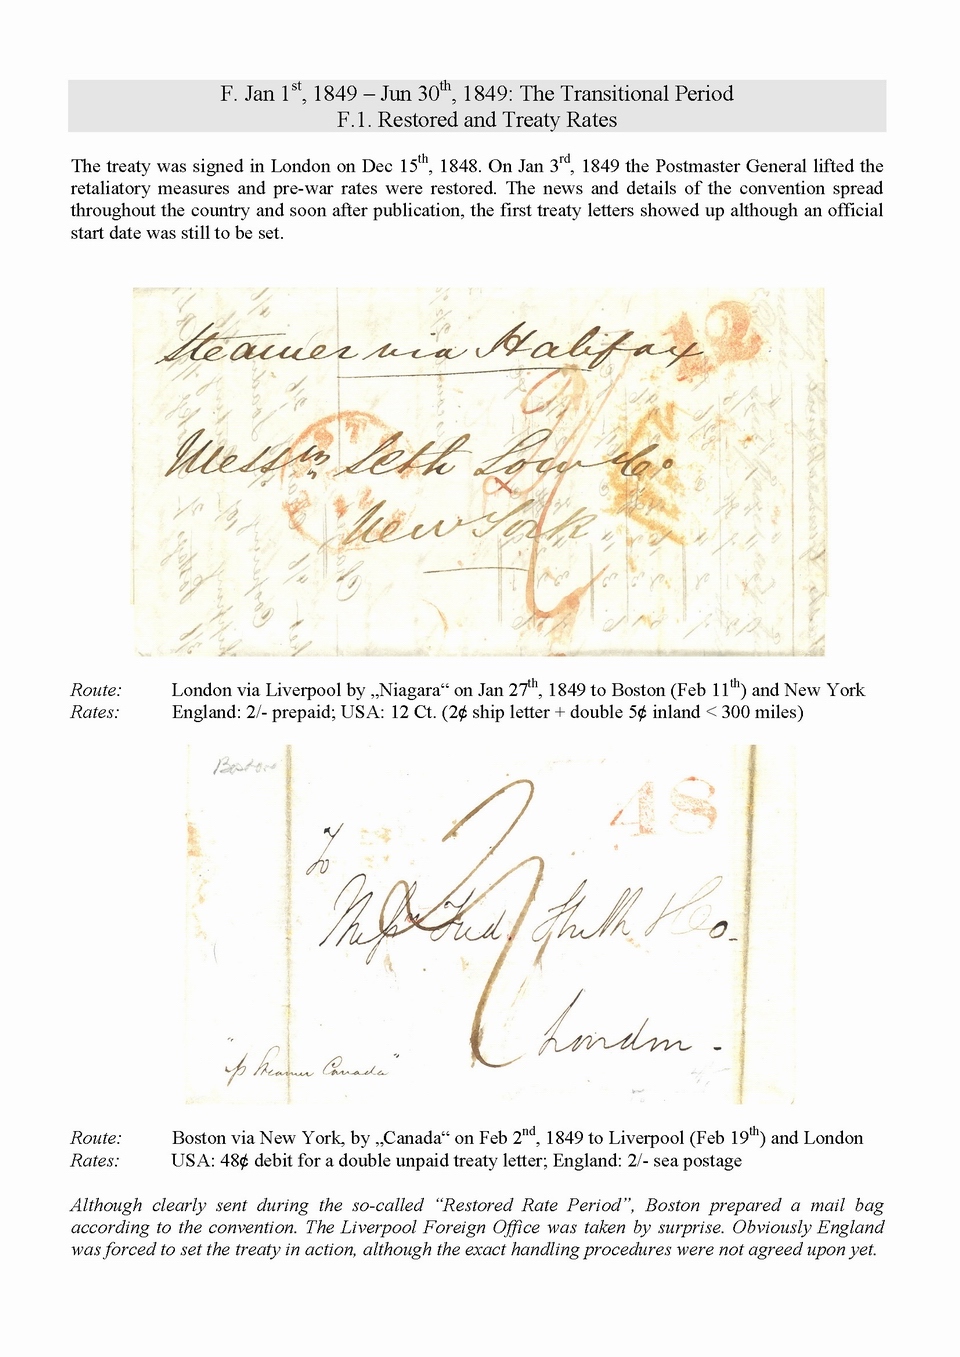 F. Jan 1st, 1849 – Jun 30th, 1849: The Transitional Period
F.1. Restored and Treaty Rates
The treaty was signed in London on Dec 15th, 1848. On Jan 3rd, 1849 the Postmaster General lifted the
retaliatory measures and pre-war rates were restored. The news and details of the convention spread
throughout the country and soon after publication, the first treaty letters showed up although an official
start date was still to be set.
Steamer via Halifax
12
Messrs Seth Low & Co
New York
Route: London via Liverpool by „Niagara“ on Jan 27th, 1849 to Boston (Feb 11th) and New York
Rates: England: 2/- prepaid; USA: 12 Ct. (2¢ ship letter + double 5¢ inland < 300 miles)
Boston
48
To
Messrs Fred. Huth & Co.
London.
"p Steamer Canada"
Route: Boston via New York, by „Canada“ on Feb 2nd, 1849 to Liverpool (Feb 19th) and London
Rates: USA: 48¢ debit for a double unpaid treaty letter; England: 2/- sea postage
Although clearly sent during the so-called “Restored Rate Period”, Boston prepared a mail bag
according to the convention. The Liverpool Foreign Office was taken by surprise. Obviously England
was forced to set the treaty in action, although the exact handling procedures were not agreed upon yet.